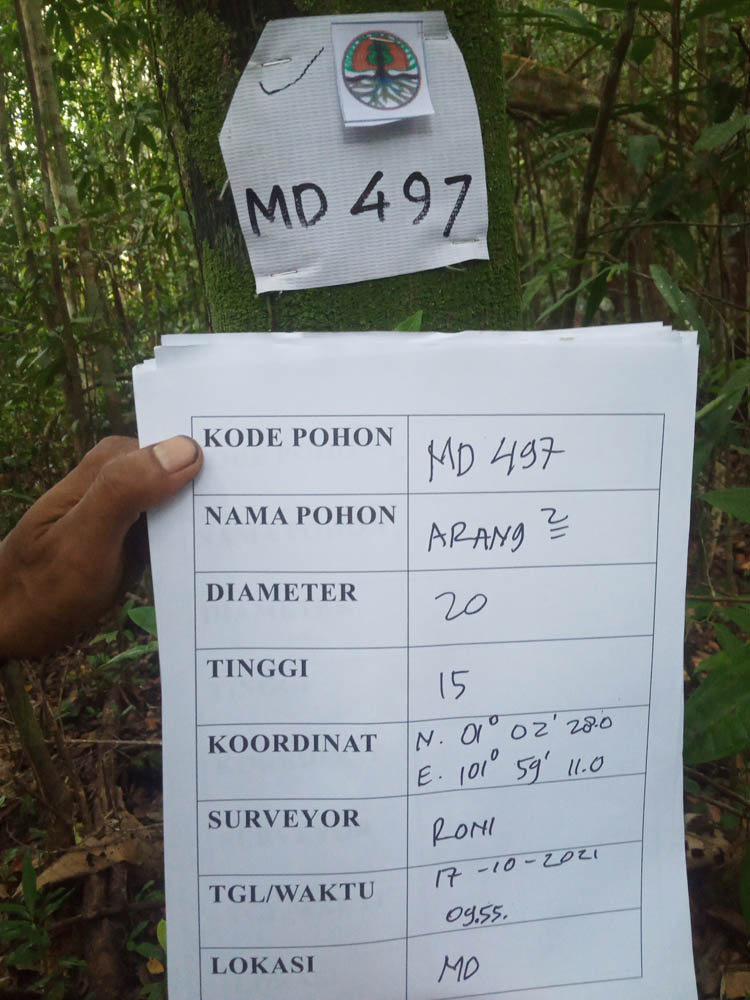 MD 497
KODE POHON MD 497
NAMA POHON ARANG 2
DIAMETER 20
TINGGI 15
KOORDINAT N. 01° 02' 28.0
E. 101° 59' 11.0
SURVEYOR RONI
TGL/WAKTU 17-10-2021
09.55.
LOKASI MD